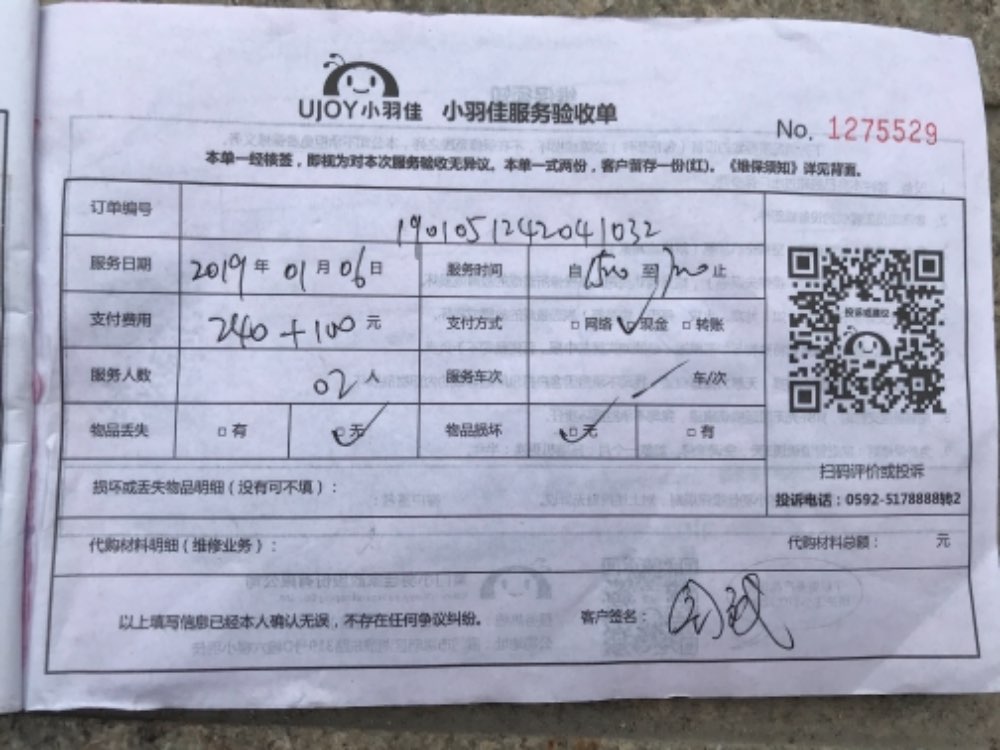 UJOY小羽佳 小羽佳服务验收单
No. 1275529
本单一经接签，即视为对本次服务验收无异议。本单一式两份，客户留存一份(红)。《维保须知》详见背面。
订单编号 1901051242041032
服务日期 2019年01月06日 服务时间 自 至 止
支付费用 240+100元 支付方式 □网络 ☑现金 □转账
服务人数 02人 服务车次 / 车/次
物品丢失 □有 ☑无 物品损坏 ☑无 □有
投诉或建议
扫码评价或投诉
投诉电话：0592-5178888转2
损坏或丢失物品明细（没有可不填）：
代购材料明细（维修业务）： 代购材料总额： 元
以上填写信息已经本人确认无误，不存在任何争议纠纷。 客户签名：